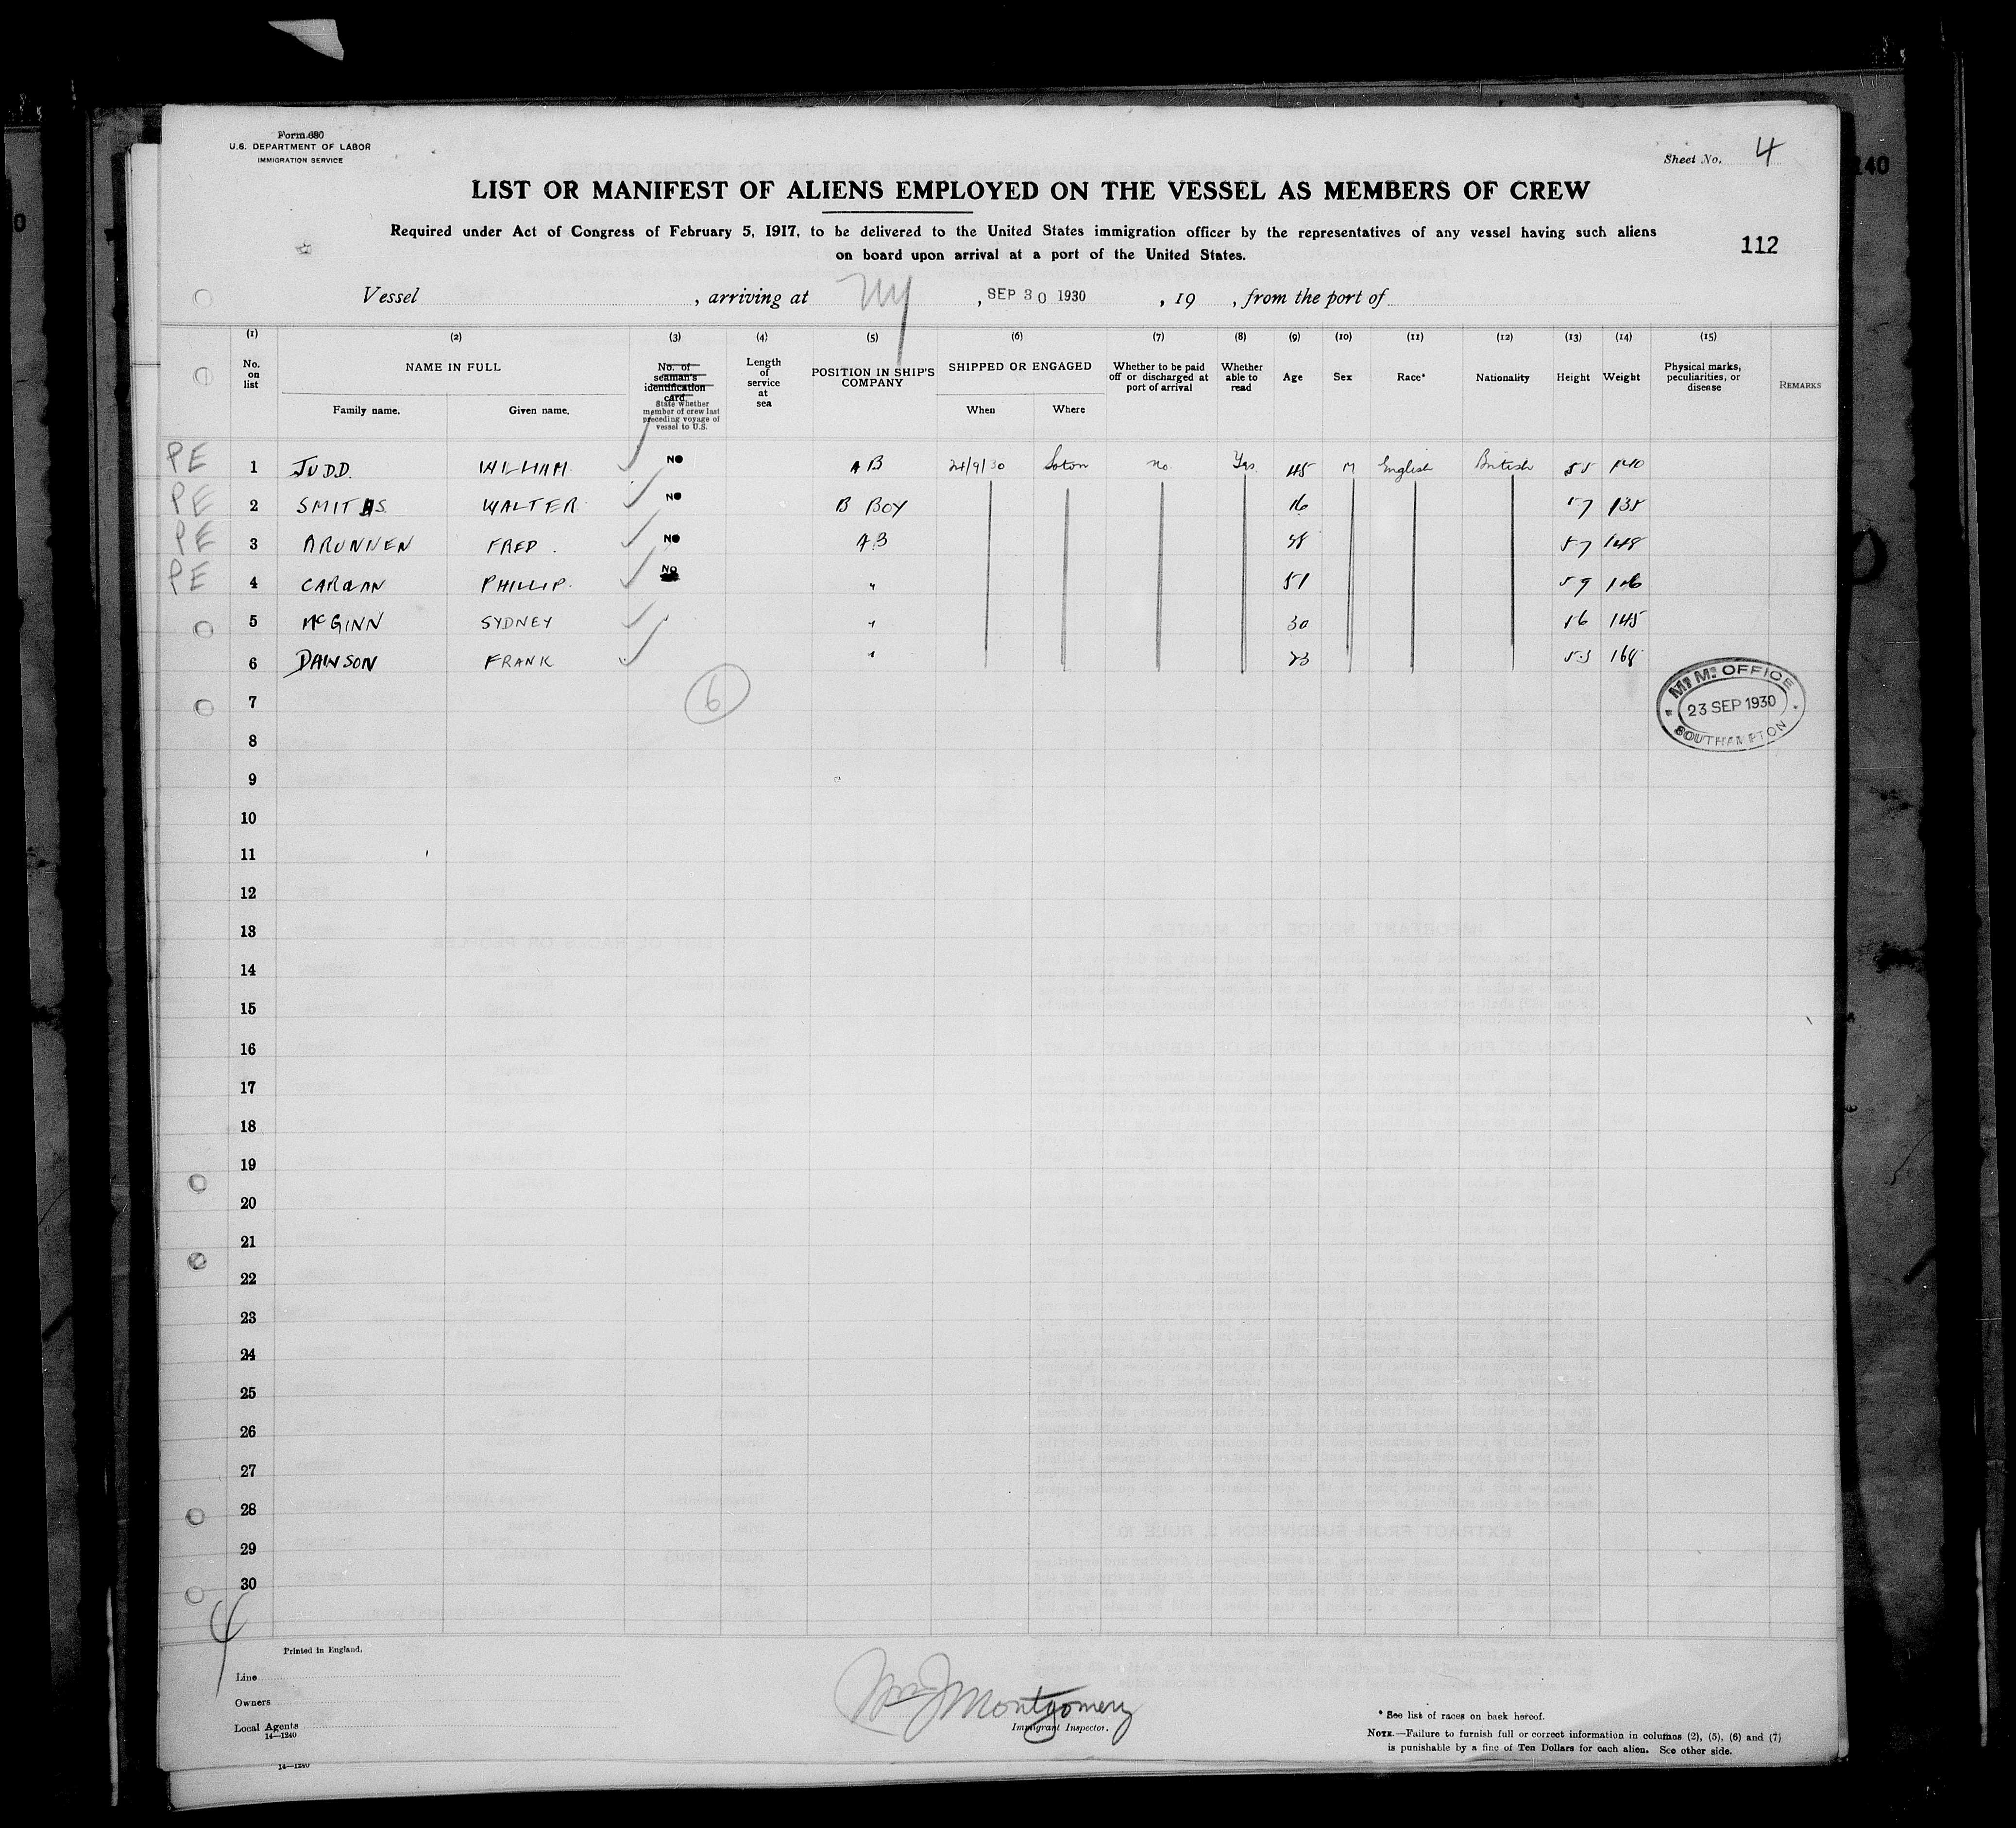 Form 680
U.S. DEPARTMENT OF LABOR
IMMIGRATION SERVICE
Sheet No. 4
LIST OR MANIFEST OF ALIENS EMPLOYED ON THE VESSEL AS MEMBERS OF CREW
Required under Act of Congress of February 5, 1917, to be delivered to the United States immigration officer by the representatives of any vessel having such aliens
on board upon arrival at a port of the United States.
112
Vessel , arriving at NY , SEP 30 1930 , 19 , from the port of
(1) (2) (3) (4) (5) (6) (7) (8) (9) (10) (11) (12) (13) (14) (15)
No. on list NAME IN FULL Family name. Given name. No. of seaman's identification card. State whether member of crew last preceding voyage of vessel to U.S. Length of service at sea POSITION IN SHIP'S COMPANY SHIPPED OR ENGAGED When Where Whether to be paid off or discharged at port of arrival Whether able to read Age Sex Race* Nationality Height Weight Physical marks, peculiarities, or disease REMARKS
PE 1 JUDD. WILLIAM. NO AB 24/9/30 Soton no. Yes. 45 M English British 5 5 140
PE 2 SMITHS. WALTER NO B BOY 16 5 7 135
PE 3 FRED. NO AB 5 7 148
PE 4 PHILLIP. No " 51 5 9
5 McGINN SYDNEY " 30 145
6 DAWSON FRANK " 168
6
7
8
9
10
11
12
13
14
15
16
17
18
19
20
21
22
23
24
25
26
27
28
29
30
M. M. OFFICE
23 SEP 1930
SOUTHAMPTON
4
Printed in England.
Line
Owners
Local Agents
14—1240
Montgomery
Immigrant Inspector.
* See list of races on back hereof.
NOTE.—Failure to furnish full or correct information in columns (2), (5), (6) and (7)
is punishable by a fine of Ten Dollars for each alien. See other side.
14—1240